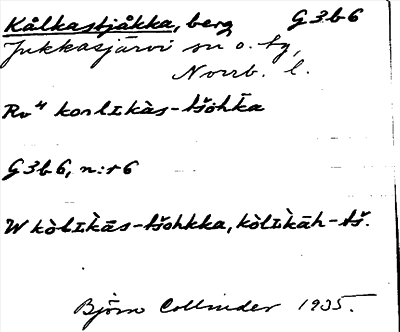 Kålkastjåkka, berg G3b6
Jukkasjärvi sn o. tg,
Norrb. l.
Rv⁴ korlɪkàs-tšohk̄a
G3b6, n:r 6
W kòlɪk̀ās-tšohkka, kòlɪk̀āh-tš.
Björn Collinder 1935.